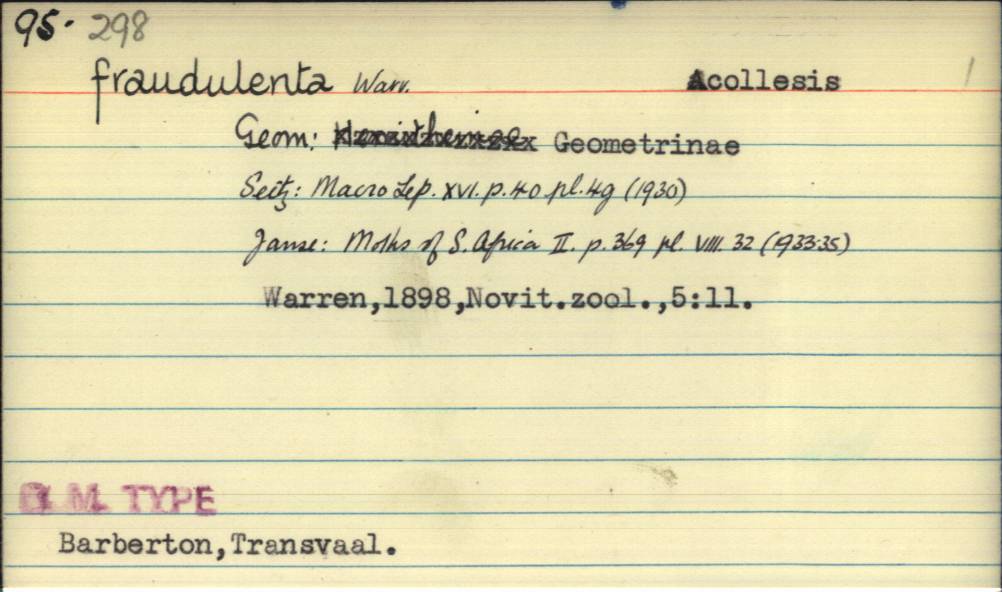 95. 298
fraudulenta Warr. Acollesis 1
Geom: Geometrinae
Seitz: Macro Lep. XVI. p. 40 pl. 4g (1930)
Janse: Moths of S. Africa II. p. 369 pl. VIII. 32 (1933-35)
Warren,1898,Novit.zool.,5:11.
B. M. TYPE
Barberton,Transvaal.